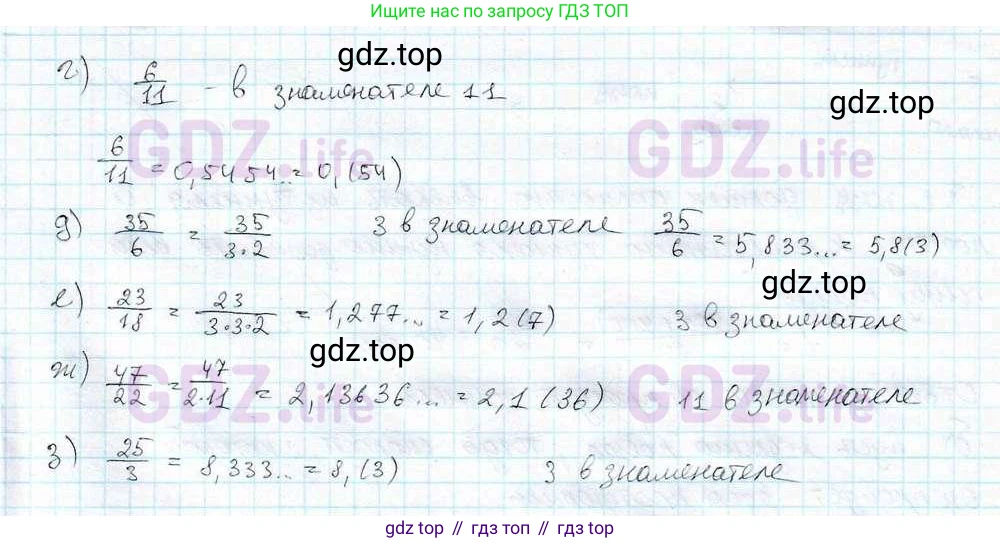 Ищите нас по запросу ГДЗ ТОП
gdz.top
г) 6/11 - в знаменателе 11
gdz.top
GDZ.life GDZ.life
6/11 = 0,5454.. = 0,(54)
д) 35/6 = 35/3·2 3 в знаменателе 35/6 = 5,833... = 5,8(3)
gdz.top
е) 23/18 = 23/3·3·2 = 1,277... = 1,2(7) 3 в знаменателе
gdz.top
GDZ.life GDZ.life
ж) 47/22 = 47/2·11 = 2,13636... = 2,1(36) 11 в знаменателе
з) 25/3 = 8,333.. = 8,(3) 3 в знаменателе
gdz.top
gdz top // гдз топ // gdz.top